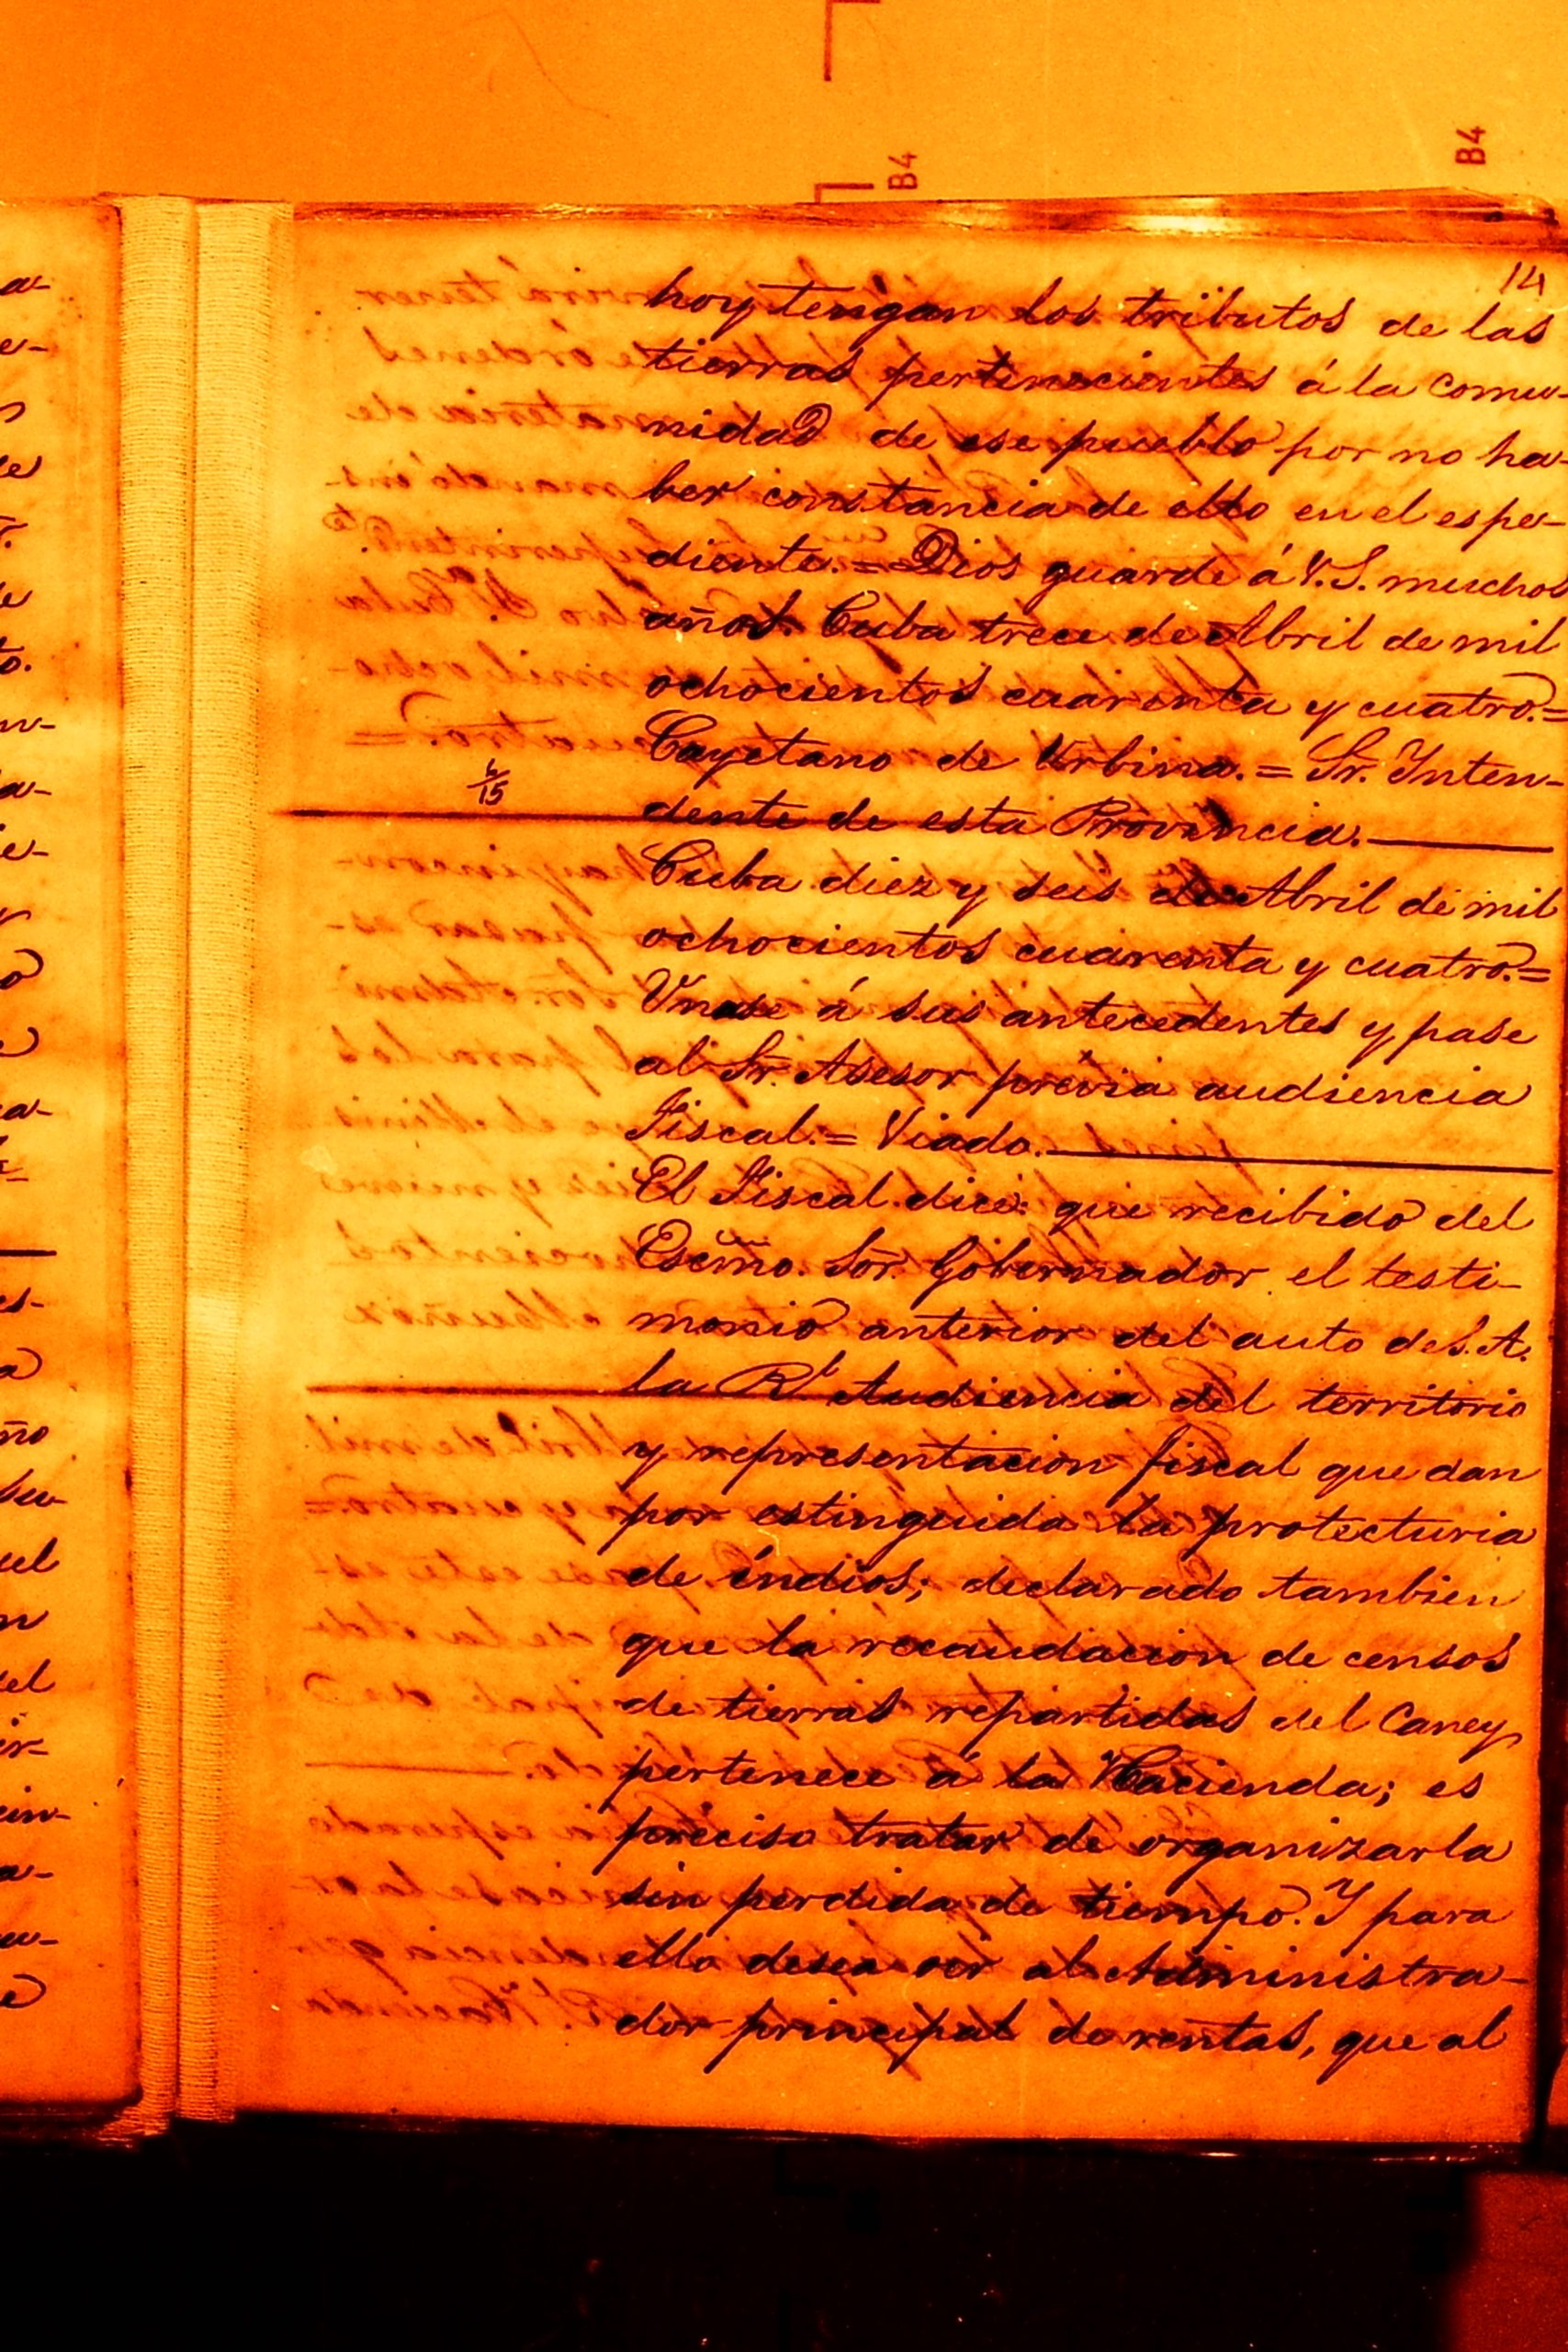 B4
B4
14
hoy tengan los tributos de las
tierras pertenecientes á la comu-
nidad de ese pueblo por no ha-
ber constancia de ello en el espe-
diente.= Dios guarde á V.S. muchos
años. Cuba trece de Abril de mil
ochocientos cuarenta y cuatro.=
Cayetano de Urbina.= Sr. Inten-
dente de esta Provincia.
Cuba diez y seis de Abril de mil
ochocientos cuarenta y cuatro.=
Unase á sus antecedentes y pase
al Sr. Asesor prévia audiencia
Fiscal.= Viado.
El Fiscal dice: que recibido del
Escmo. Sõr. Gobernador el testi-
monio anterior del auto de S.A.
la Rl. Audiencia del territorio
y representacion fiscal que dan
por estinguida la protecturia
de indios; declarado tambien
que la recaudacion de censos
de tierras repartidas del Caney
pertenece á la Hacienda; es
preciso tratar de organizarla
sin perdida de tiempo. Y para
ello desea oir al Administra-
dor principal de rentas, que al